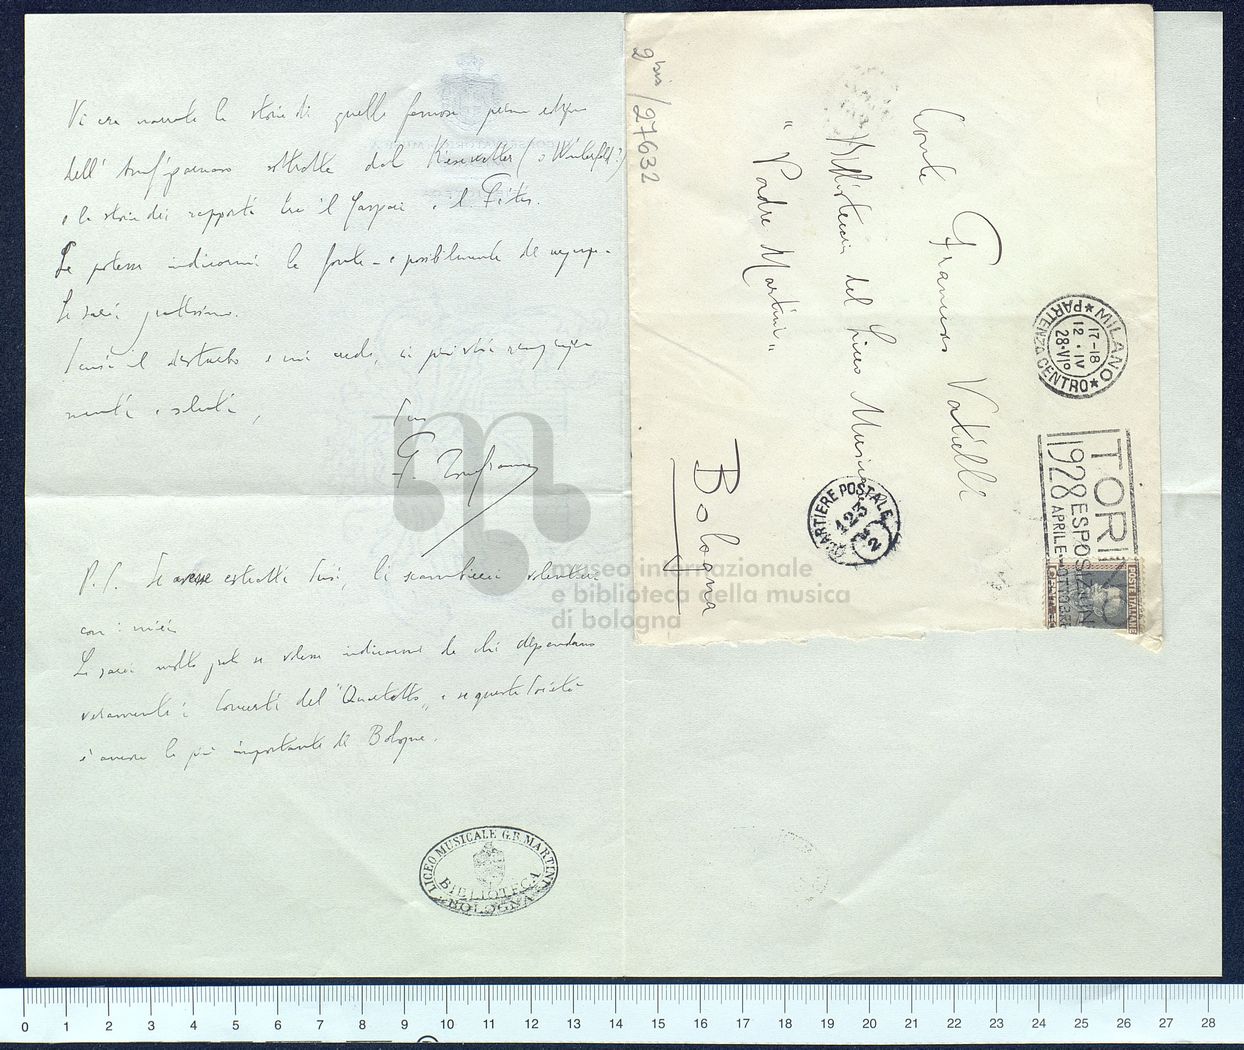 Vi era narrata la storia di quella famosa prima edizione
dell'Amfiparnaso sottratta dal Kiesewetter (o Winterfeld?)
e la storia dei rapporti tra il Gaspari e il Fétis.
Se potesse indicarmi la fonte - e possibilmente
Le sarei gratissimo.
Scusi il disturbo e mi creda, coi più vivi
e saluti,
Suo
P.S. Se avesse estratti Suoi, li scambierei volentieri
con i miei.
Le sarei molto grato se volesse indicarmi da chi dipendano
veramente i Concerti del "Quartetto", e se questa Società
è ancora la più importante di Bologna.
LICEO MUSICALE G.B. MARTINI
BIBLIOTECA
BOLOGNA
2 bis / 27632
Conte Francesco Vatielli
Bibliotecario del Liceo Musicale
"Padre Martini"
Bologna
MILANO
PARTENZA CENTRO
17-18
12·IV
28·VIº
TORINO
1928 ESPOSIZIONI
APRILE-OTTOBRE
POSTE ITALIANE
QUARTIERE POSTALE
123
2
museo internazionale
e biblioteca della musica
di bologna
0 1 2 3 4 5 6 7 8 9 10 11 12 13 14 15 16 17 18 19 20 21 22 23 24 25 26 27 28